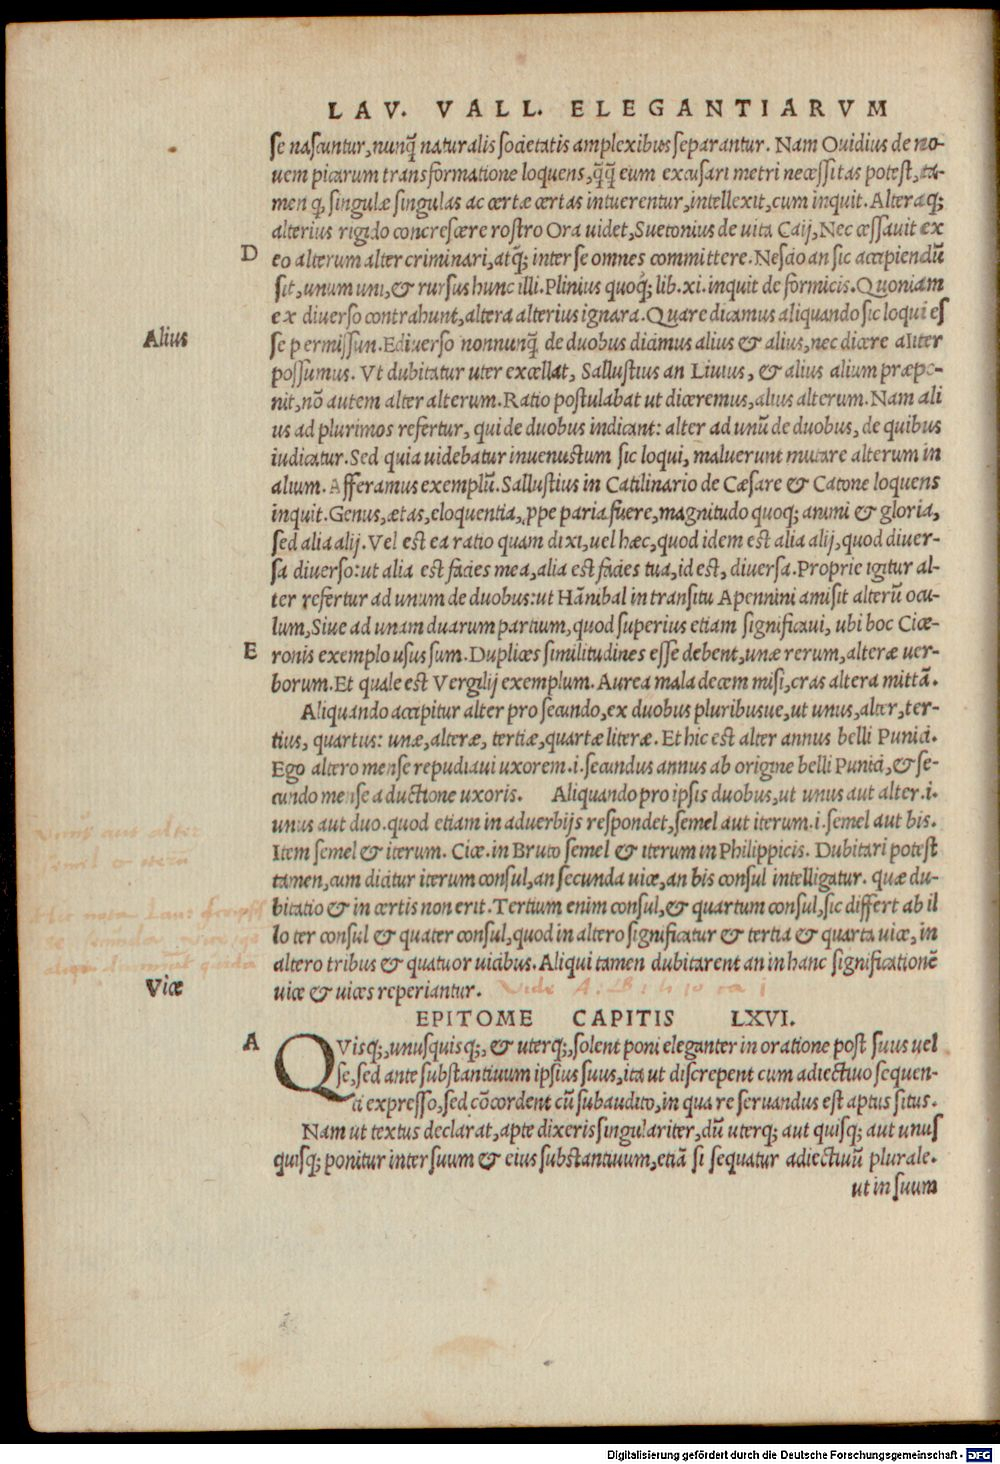 LAV. VALL. ELEGANTIARVM
se nascuntur, nunq̃ naturalis societatis amplexibus separantur. Nam Ouidius de no-
uem picarum transformatione loquens, q̃q̃ eum excusari metri necessitas potest, ta-
men q, singulæ singulas ac certæ certas intuerentur, intellexit, cum inquit. Alteraq;
alterius rigido concrescere rostro Ora uidet, Suetonius de uita Caij, Nec cessauit ex
D
eo alterum alter criminari, atq; inter se omnes committere. Nescio an sic accipiendũ
sit, unum uni, & rursus hunc illi. Plinius quoq; lib. xi. inquit de formicis. Quoniam
ex diuerso contrahunt, altera alterius ignara. Quare dicamus aliquando sic loqui es
Alius
se permissum. E diuerso nonnunq̃ de duobus dicimus alius & alius, nec dicere aliter
possumus. Vt dubitatur uter excellat, Sallustius an Liuius, & alius alium præpo-
nit, nõ autem alter alterum. Ratio postulabat ut diceremus, alius alterum. Nam ali
us ad plurimos refertur, qui de duobus indicant: alter ad unũ de duobus, de quibus
iudicatur. Sed quia uidebatur inuenustum sic loqui, maluerunt mutare alterum in
alium. Afferamus exemplũ. Sallustius in Catilinario de Cæsare & Catone loquens
inquit. Genus, ætas, eloquentia, ꝓpe paria fuere, magnitudo quoq; animi & gloria,
sed alia alij. Vel est ea ratio quam dixi, uel hæc, quod idem est alia alij, quod diuer-
sa diuerso: ut alia est facies mea, alia est facies tua, id est, diuersa. Proprie igitur al-
ter refertur ad unum de duobus: ut Hãnibal in transitu Apennini amisit alterũ ocu-
lum, Siue ad unam duarum partium, quod superius etiam significaui, ubi hoc Cice-
E
ronis exemplo usus sum. Duplices similitudines esse debent, unæ rerum, alteræ uer-
borum. Et quale est Vergilij exemplum. Aurea mala decem misi, cras altera mittã.
Aliquando accipitur alter pro secundo, ex duobus pluribusue, ut unus, alter, ter-
tius, quartus: unæ, alteræ, tertiæ, quartæ literæ. Et hic est alter annus belli Punici.
Ego altero mense repudiaui uxorem .i. secundus annus ab origine belli Punici, & se-
cundo mense a ductione uxoris. Aliquando pro ipsis duobus, ut unus aut alter .i.
unus aut duo. quod etiam in aduerbijs respondet, semel aut iterum .i. semel aut bis.
Item semel & iterum. Cice. in Bruto semel & iterum in Philippicis. Dubitari potest
tamen, cum dicitur iterum consul, an secunda uice, an bis consul intelligatur. quæ du-
bitatio & in certis non erit. Tertium enim consul, & quartum consul, sic differt ab il
lo ter consul & quater consul, quod in altero significatur & tertia & quarta uice, in
altero tribus & quatuor uicibus. Aliqui tamen dubitarent an in hanc significationẽ
Vice
uice & uices reperiantur.
EPITOME CAPITIS LXVI.
A
QVisq;, unusquisq;, & uterq;, solent poni eleganter in oratione post suus uel
se, sed ante substantiuum ipsius suus, ita ut discrepent cum adiectiuo sequen-
ti expresso, sed cõcordent cũ subaudito, in qua re seruandus est aptus situs.
Nam ut textus declarat, apte dixeris singulariter, dũ uterq; aut quisq; aut unus
quisq; ponitur inter suum & eius substantiuum, etiã si sequatur adiectiuũ plurale.
ut in suum
Digitalisierung gefördert durch die Deutsche Forschungsgemeinschaft - DFG